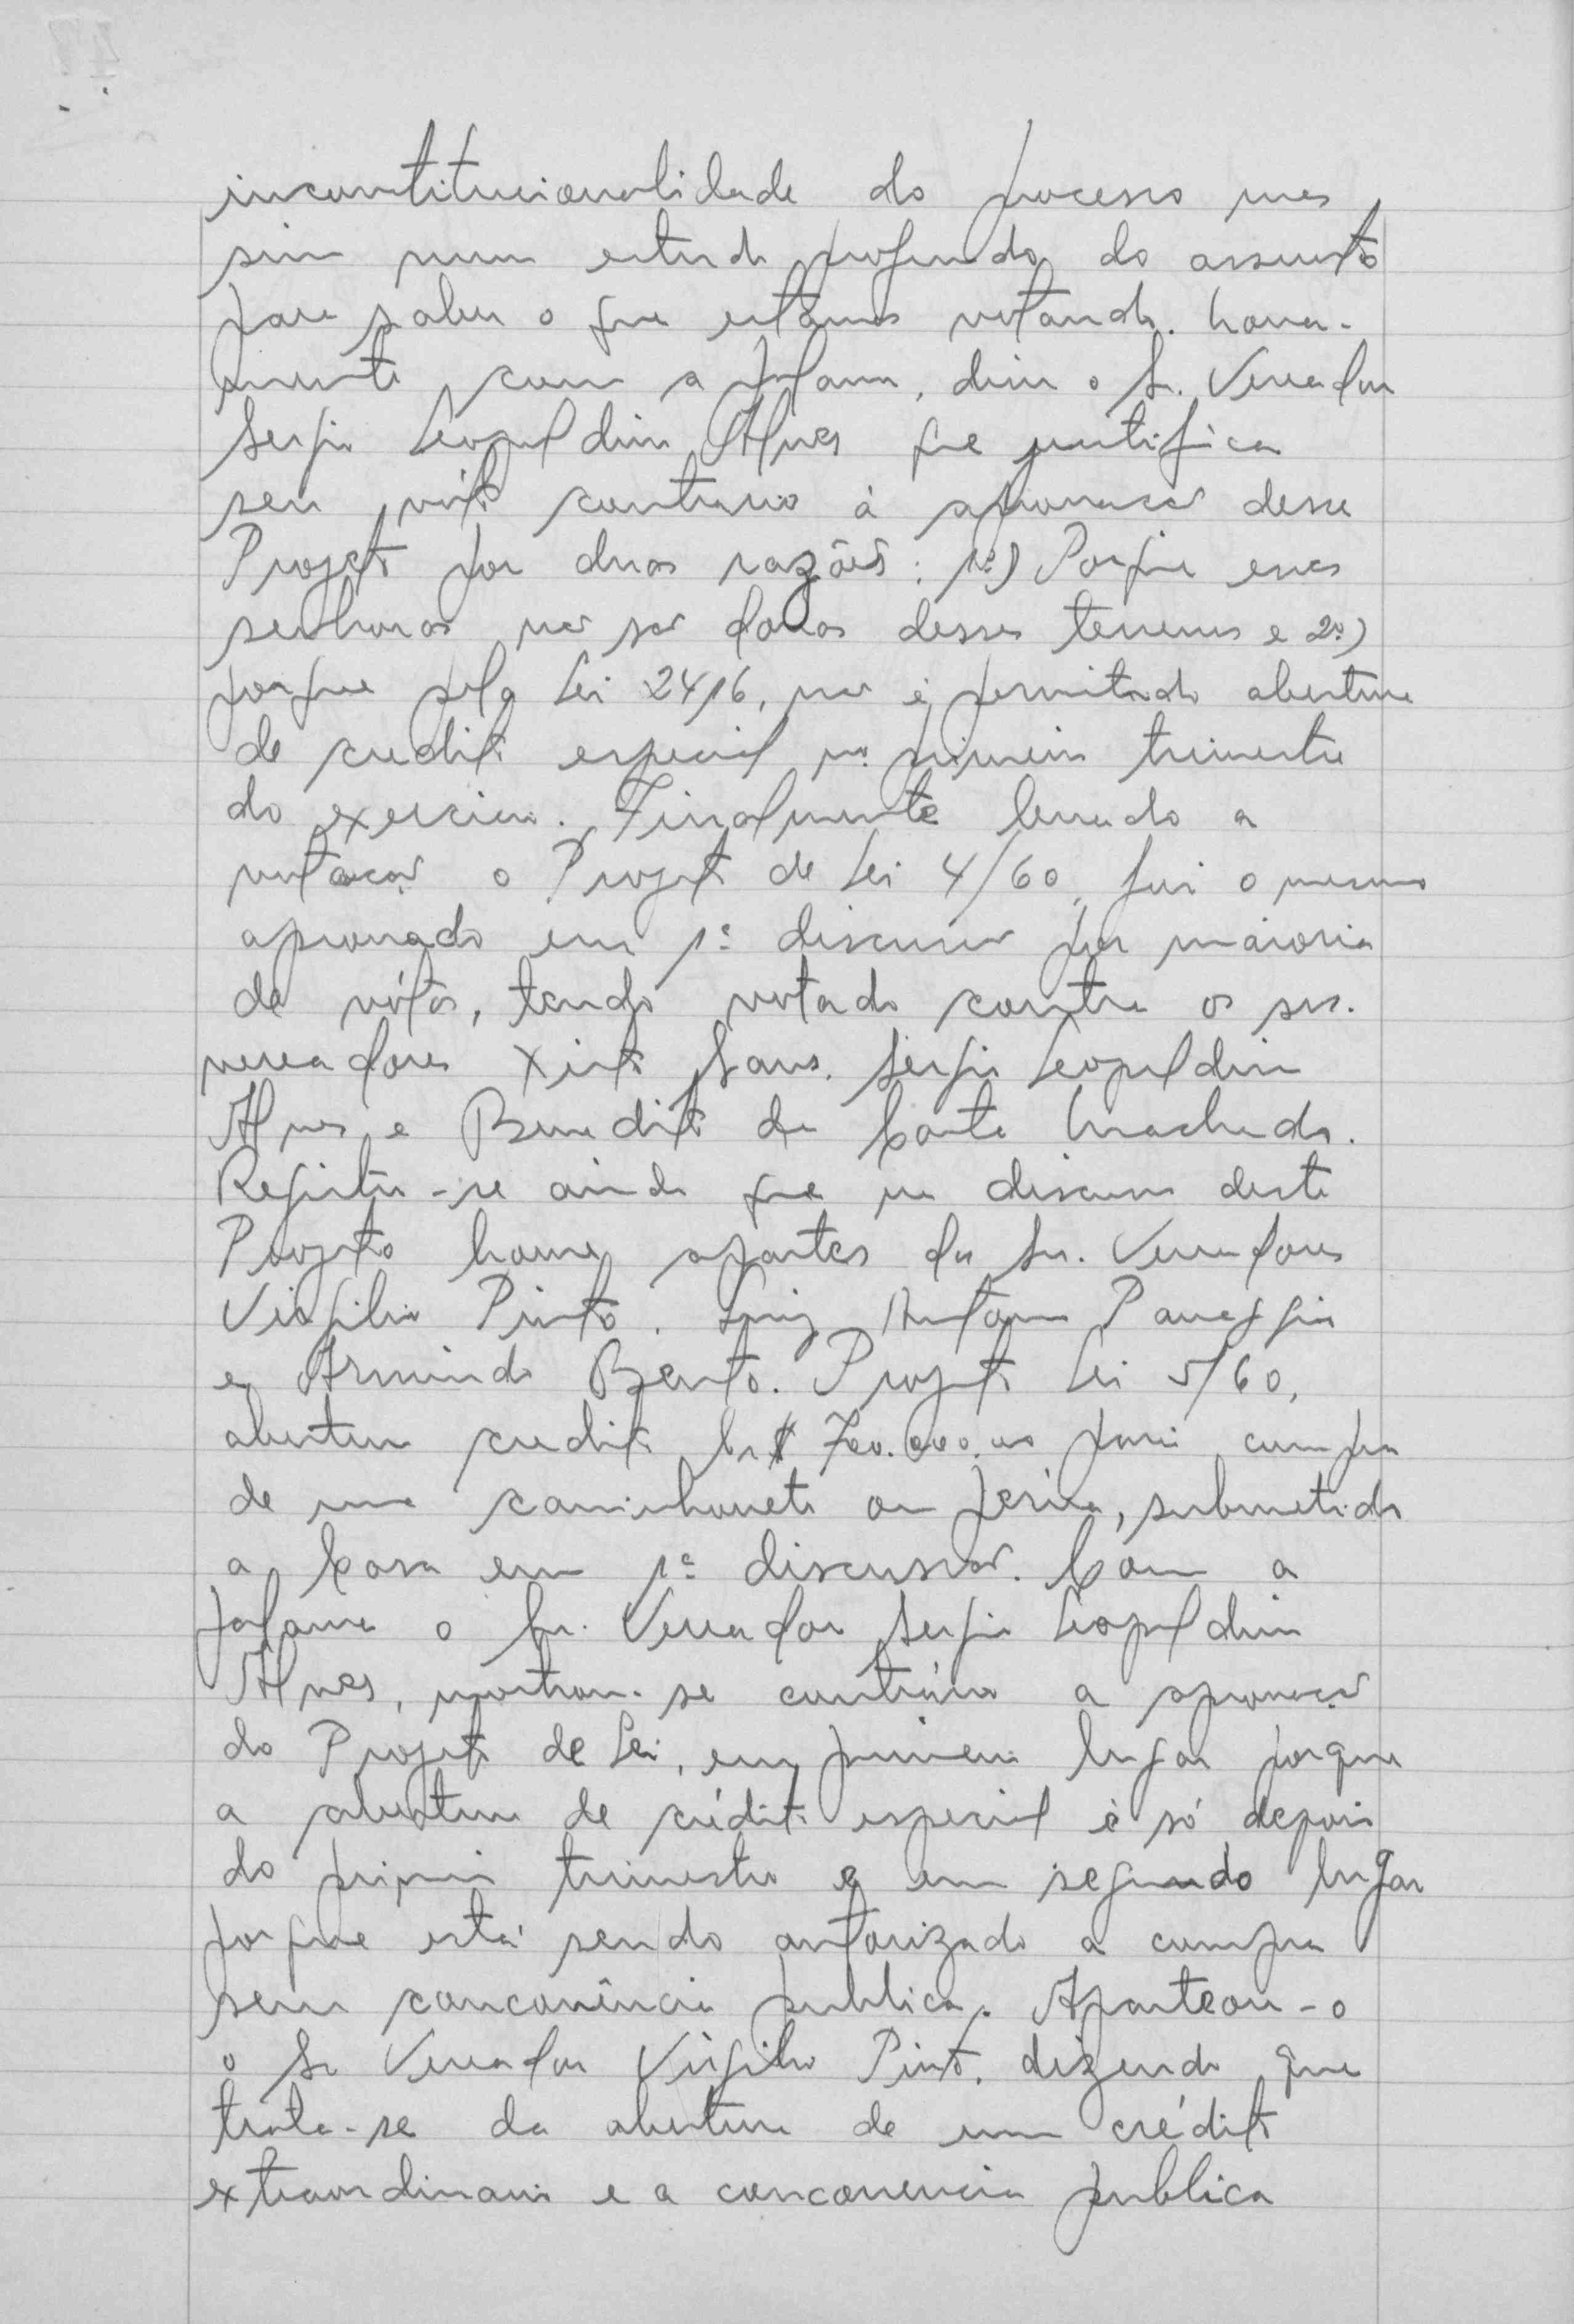 inconstitucionalidade do processo mas
sim num estudo profundo do assunto
para saber o que estamos votando. Nova-
mente com a palavra, disse o Sr. Vereador
Sergio Leopoldino Alves que justifica
seu vóto contrario á aprovação desse
Projeto por duas razões: 1º) Porque esses
senhores não são donos desses terrenos e 2º)
porque pela Lei 2416, não é permitindo abertura
de credito especial no primeiro trimestre
do exercicio. Finalmente levado a
votação o Projeto de Lei 4/60, foi o mesmo
aprovado em 1ª discussão por maioria
de vótos, tendo votado contra os srs.
vereadores Xisto Sergio Leopoldino
Alves e Benedito da Costa Machado.
Registra-se ainda que na discussão deste
Projeto houve apartes dos Srs. Vereadores
Virgilio Pinto, Luiz Antonio
e Armindo Bento. Projeto Lei 5/60,
abertura credito Cr$ 700.000,00 para compra
de uma caminhonete ou perúa, submetido
a Casa em 1ª discussão. Com a
palavra o Sr. Vereador Sergio Leopoldino
Alves, mostrou-se contrário a aprovação
do Projeto de Lei, em primeiro lugar porque
a abertura de crédito especial é só depois
do primeiro trimestre e em segundo lugar
porque está sendo autorizado a compra
sem concorrência publica. Aparteou-o
o Sr Vereador Virgilio Pinto, dizendo que
trata-se da abertura de um crédito
extraordinario e a concorrencia publica